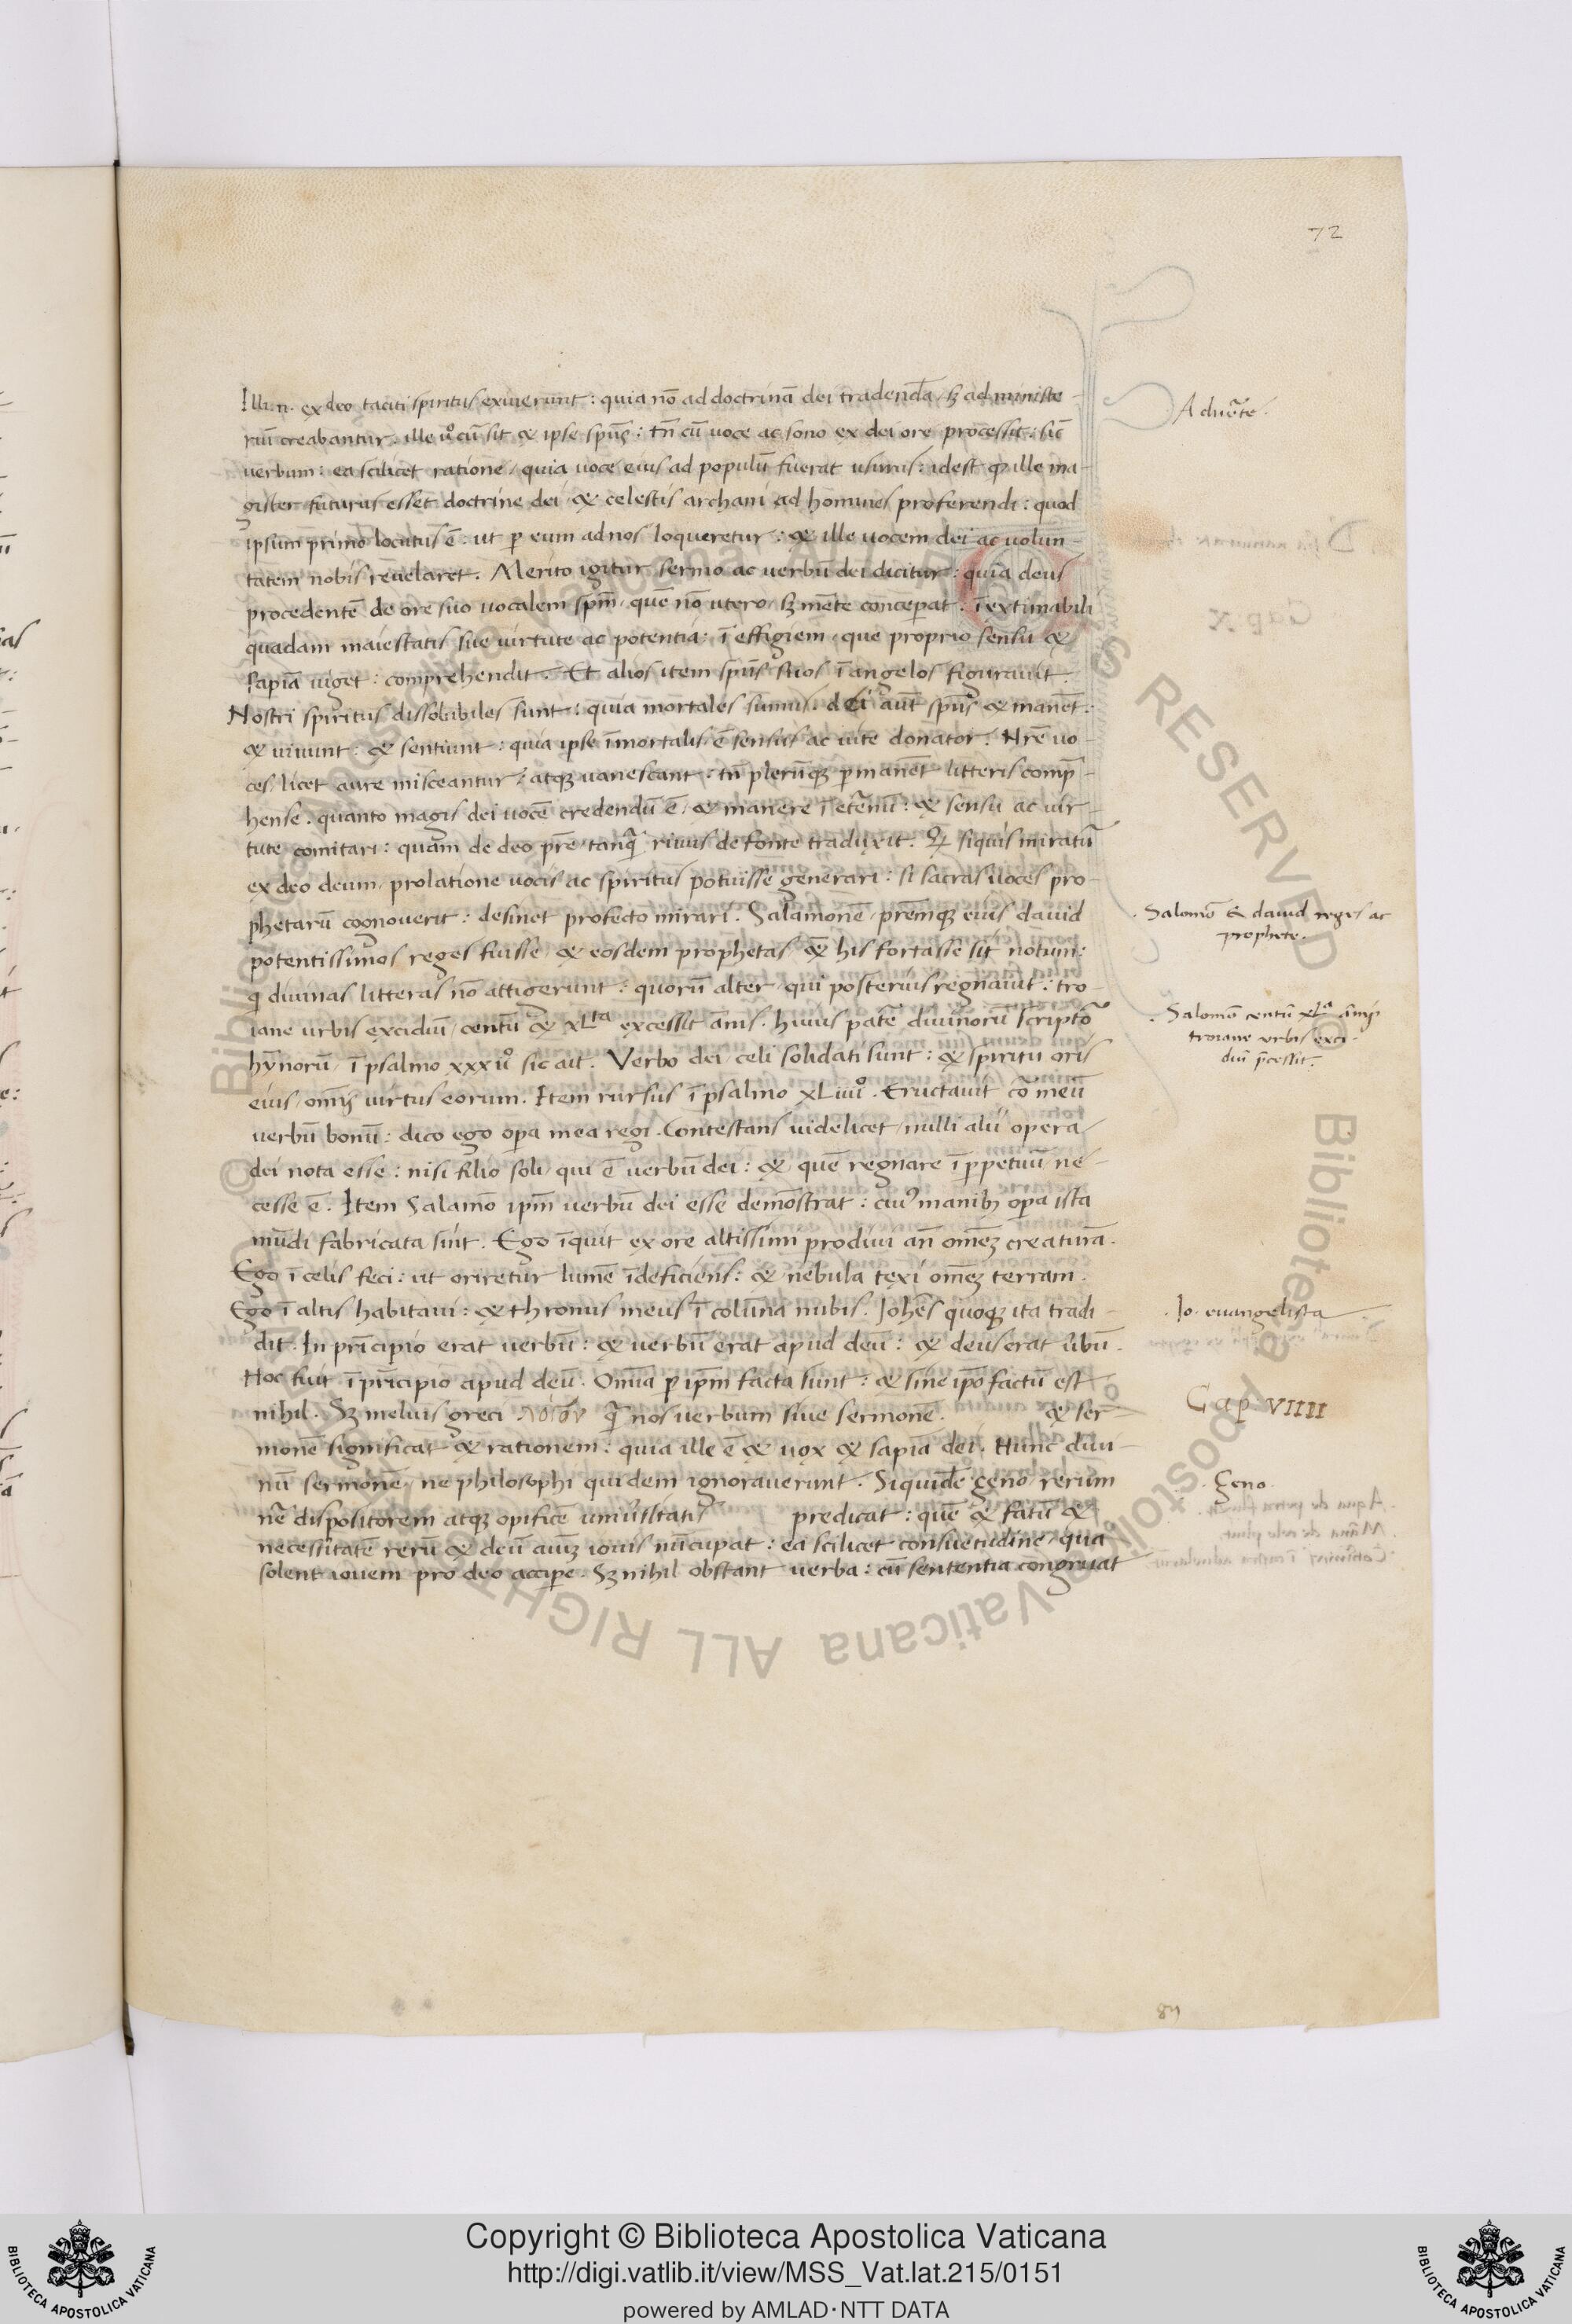 72
Illi .n. ex deo taciti spiritus exiuerunt : quia nō ad doctrinā dei tradendā / sꝫ ad ministe-
riū creabantur. ille u̾o cū sit & ipse spūs : tn̄ cū uoce ac sono ex dei ore processit : sic̄
verbum : ea scilicet ratione / quia uoce eius ad populū fuerat usurus : idest ꝙ ille ma-
gister futurus esset doctrine dei & celestis archani ad homines proferendi : quod
ipsum primo locutus ē : ut p eum ad nos loqueretur : & ille uocem dei ac volun-
tatem nobis revelaret. Merito igitur sermo ac verbū dei dicitur : quia deus
procedentē de ore suo vocalem spm̄ / quē nō utero / sꝫ mēte conceperat. ī extimabili
quadam maiestatis sue virtute ac potentia : ī effigiem / que proprio sensu &
sapīa uiget : comprehendit. Et alios item spūs suos ī angelos figurauit.
Nostri spiritus dissolubiles sunt : quia mortales sumus. dei aut̄ spūs & manēt :
& vivunt : & sentiunt : quia ipse īmortalis ē sensus ac uite donator. Nr̄e uo-
ces / licet aure misceantur / atqꝫ vanescant : tn̄ plerūqꝫ pmanēt litteris comp̄-
hense. quanto magis dei uocē credendū ē / & manere ī etern̄ū : & sensu ac vir-
tute comitari : quam de deo pr̄e tanq̄ rivus de fonte traduxit. Ꝙ siquis miratur̄
ex deo deum / prolatione vocis ac spiritus potuisse generari : si sacras uoces pro-
phetarū cognouerit : desinet profecto mirari. Salamonē / prēmqꝫ eius dauid
potentissimos reges fuisse / & eosdem prophetas / & his fortasse sit notum :
q̄ divinas litteras nō attigerunt : quorū alter / qui posterius regnauit : tro-
iane vrbis excidiū / centū & xLta excessit ānis. huius patēr divinorū scriptor̄
hȳnorū / ī psalmo xxxiio sic ait. Verbo dei / celi solidati sunt : & spiritu oris
eius / omīs uirtus eorum. Item rursus ī psalmo xLiiiio. Eructavit cōr meū
verbū bonū : dico ego opa mea regi. Contestans videlicet / nulli alii opera
dei nota esse : nisi filio soli / qui ē verbū dei : & quē regnare ī ppetuū ne-
cesse ē. Item Salamō ipm̄ uerbū dei esse demōstrat : cui9 manibꝫ opa ista
mūdi fabricata sint. Ego īquit ex ore altissimi prodivi an̄ omēꝫ creaturā.
Ego ī celis feci : ut oriretur lumē īdeficiens : & nebula texi omēꝫ terram.
Ego ī altis habitavi : & thronus meus ī colūna nubis. Johēs quoqꝫ ita tradi-
dit. In prīcipio erat verbū : & verbū erat apud deū : & deus erat ūbū.
Hoc fuit ī prīcipio apud deū. Omīa p ipm̄ facta sunt : & sine ipō factū est
nihil. Sꝫ melius greci λόγον q̄ nos verbum siue sermonē. & ser-
monē significat & rationem : quia ille ē & vox & sapīa dei. Hunc divi-
nū sermonē / ne philosophi quidem ignoraverunt. Siquidē Zeno / rerum
nē dispositorem atqꝫ opificē univ̾sitatis predicat : quē & fatū &
necessitatē rerū & deū & aīuꝫ iovis nūcupat : ea scilicet consuetudine / qua
solent iovem pro deo accipe. Sꝫ nihil obstant verba : cū sententia congruat
Aduᵒte.
Salomō & dauid reges ac
prophete.
Salomō centū xLa ānis
troiane vrbis exci-
diū p̄cessit.
Jo. evangelista
Cap VIIII
Zeno.
Copyright © Biblioteca Apostolica Vaticana
http://digi.vatlib.it/view/MSS_Vat.lat.215/0151
powered by AMLAD·NTT DATA